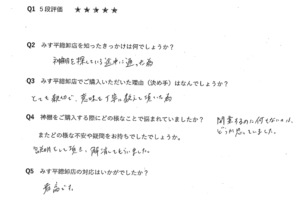 Q1 5段評価 ★★★★★
Q2 みす平総卸店を知ったきっかけは何でしょうか?
神棚を探している途中に通った為
Q3 みす平総卸店でご購入いただいた理由(決め手)はなんでしょうか?
とても親切で、意味も丁寧に教えて頂いた為
Q4 神棚を購入する際にどの様なことで悩まれていましたか?
またどの様な不安や疑問をお持ちでしたでしょうか。
どうか思っていました。
して頂き、解消してもらいました。
Q5 みす平総卸店の対応はいかがでしたか?
最高です。